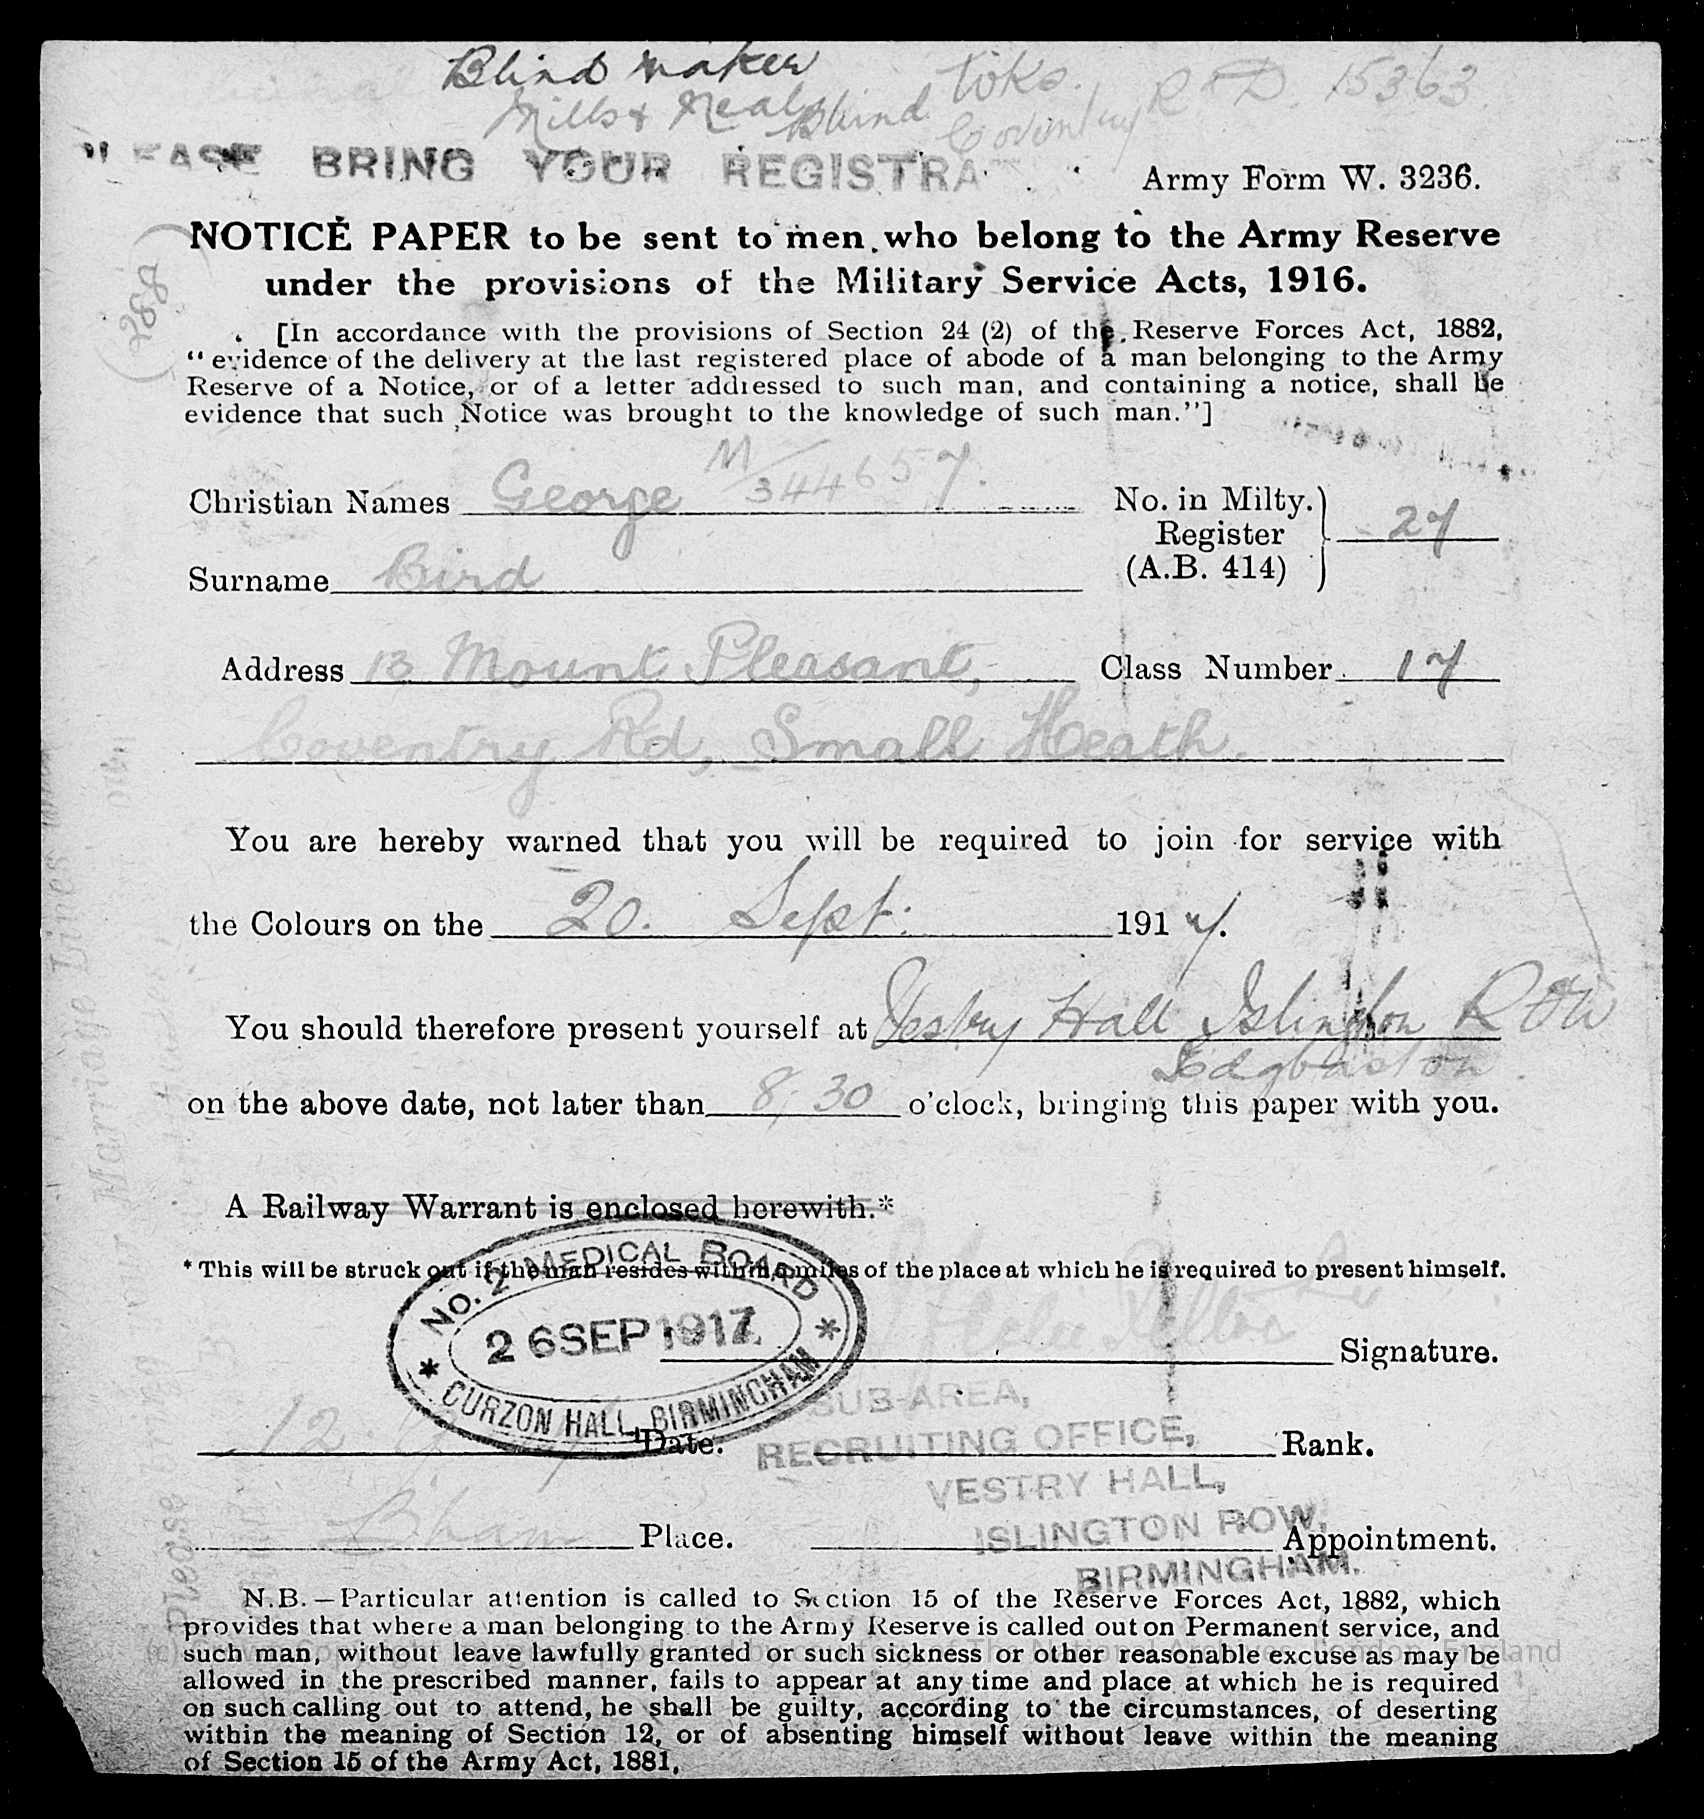 Blind maker
Mills & Neal Blind Wks. R & D. 15363
Coventry
PLEASE BRING YOUR REGISTRA
Army Form W. 3236.
NOTICE PAPER to be sent to men who belong to the Army Reserve
under the provisions of the Military Service Acts, 1916.
(288)
[In accordance with the provisions of Section 24 (2) of the Reserve Forces Act, 1882,
"evidence of the delivery at the last registered place of abode of a man belonging to the Army
Reserve of a Notice, or of a letter addressed to such man, and containing a notice, shall be
evidence that such Notice was brought to the knowledge of such man."]
M/344657.
Christian Names George
No. in Milty. Register (A.B. 414) 27
Surname Bird
Address 13 Mount Pleasant,
Class Number 17
Coventry Rd, Small Heath.
You are hereby warned that you will be required to join for service with
the Colours on the 20. Sept: 1917.
You should therefore present yourself at Vestry Hall Islington Row
Edgbaston
on the above date, not later than 8.30 o'clock, bringing this paper with you.
A Railway Warrant is enclosed herewith.*
*This will be struck out if the man resides within 5 miles of the place at which he is required to present himself.
No. 2 MEDICAL BOARD
26 SEP 1917
CURZON HALL, BIRMINGHAM
Signature.
SUB-AREA,
12. Date.
RECRUITING OFFICE,
Rank.
VESTRY HALL,
B'ham Place.
ISLINGTON ROW,
Appointment.
BIRMINGHAM.
N.B.—Particular attention is called to Section 15 of the Reserve Forces Act, 1882, which
provides that where a man belonging to the Army Reserve is called out on Permanent service, and
such man, without leave lawfully granted or such sickness or other reasonable excuse as may be
allowed in the prescribed manner, fails to appear at any time and place at which he is required
on such calling out to attend, he shall be guilty, according to the circumstances, of deserting
within the meaning of Section 12, or of absenting himself without leave within the meaning
of Section 15 of the Army Act, 1881.
Please
Marriage Lines